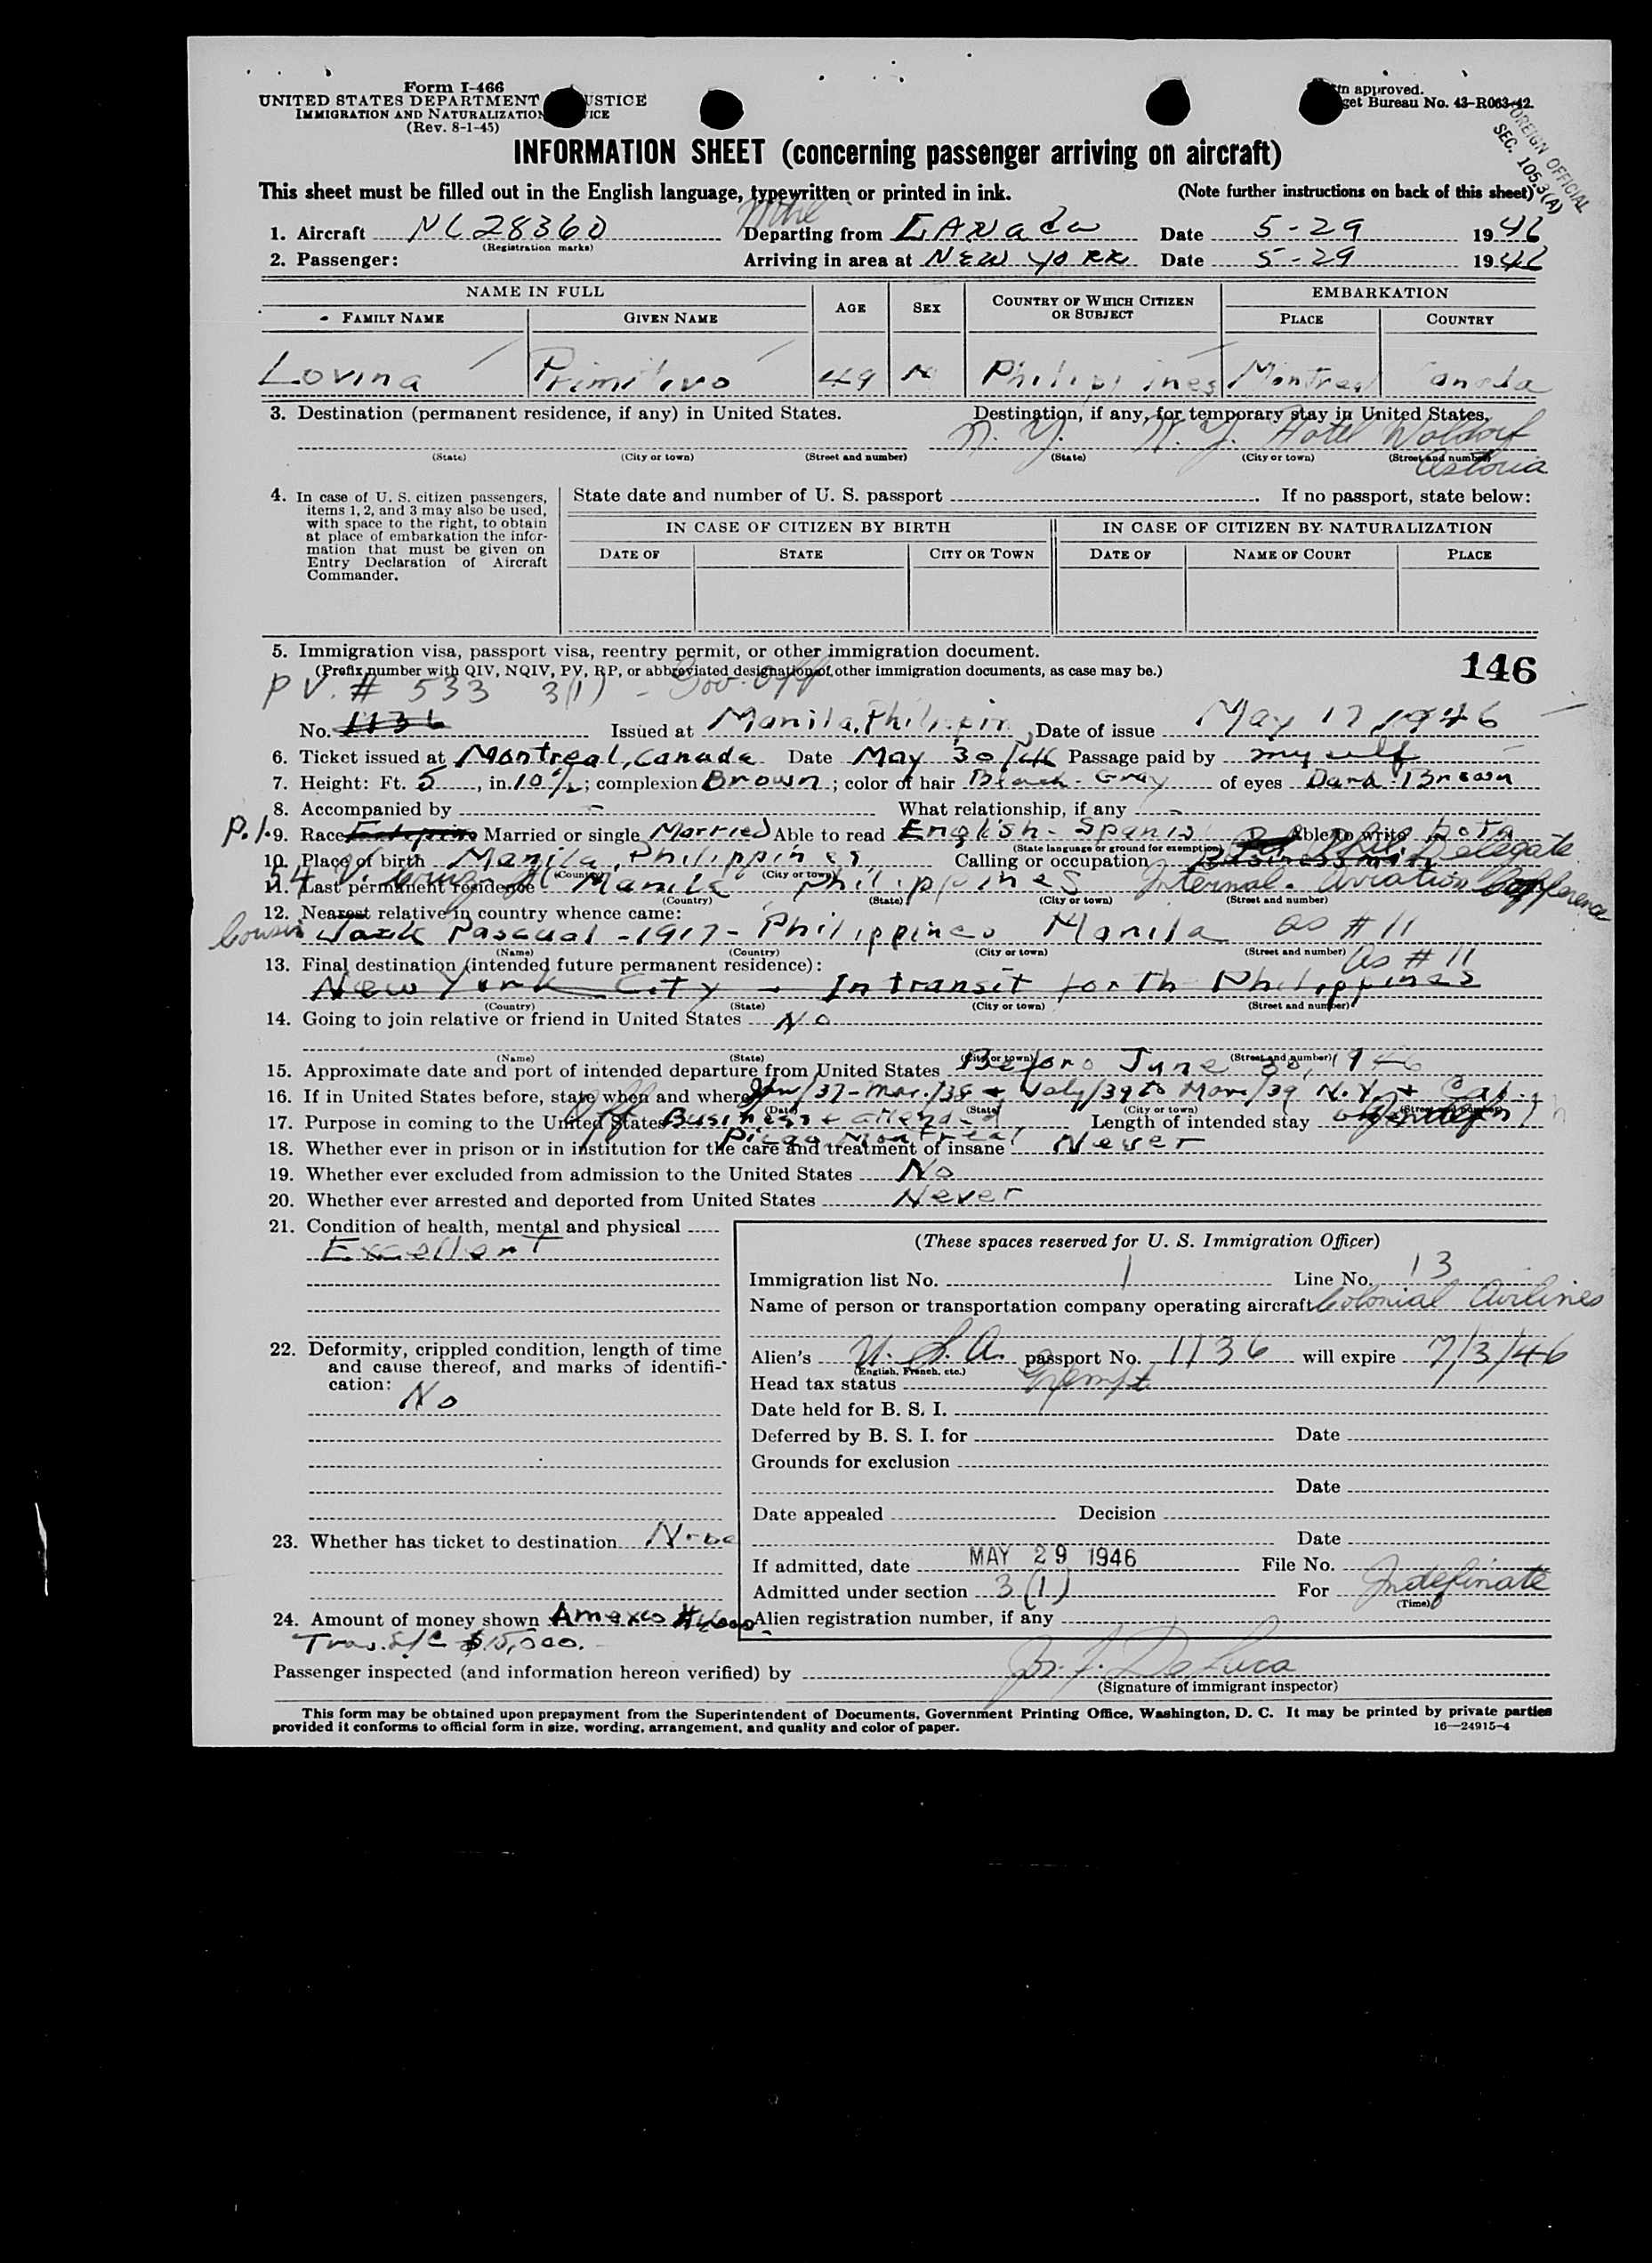 Form I-466
UNITED STATES DEPARTMENT USTICE
IMMIGRATION AND NATURALIZATION ICE
(Rev. 8-1-45)
approved.
get Bureau No. 43-R063-42.
FOREIGN OFFICIAL
SEC. 105.3(A)
INFORMATION SHEET (concerning passenger arriving on aircraft)
This sheet must be filled out in the English language, typewritten or printed in ink. (Note further instructions on back of this sheet)
1. Aircraft NC28360 Departing from CANada Date 5-29 1946
(Registration marks)
2. Passenger: Arriving in area at NEW YORK Date 5-29 1946
NAME IN FULL AGE SEX COUNTRY OF WHICH CITIZEN OR SUBJECT EMBARKATION
FAMILY NAME GIVEN NAME PLACE COUNTRY
Lovina Primitivo 49 M Philippines Montreal Canada
3. Destination (permanent residence, if any) in United States. Destination, if any, for temporary stay in United States.
N. Y. N. Y. Hotel Waldorf
(State) (City or town) (Street and number) (State) (City or town) (Street and number)
Astoria
4. In case of U. S. citizen passengers, items 1, 2, and 3 may also be used, with space to the right, to obtain at place of embarkation the information that must be given on Entry Declaration of Aircraft Commander.
State date and number of U. S. passport If no passport, state below:
IN CASE OF CITIZEN BY BIRTH IN CASE OF CITIZEN BY NATURALIZATION
DATE OF STATE CITY OR TOWN DATE OF NAME OF COURT PLACE
5. Immigration visa, passport visa, reentry permit, or other immigration document.
(Prefix number with QIV, NQIV, PV, RP, or abbreviated designation of other immigration documents, as case may be.) 146
PV. # 533 3(1) - Gov. Off
No. 1136 Issued at Manila, Philippin Date of issue May 17, 1946
6. Ticket issued at Montreal, Canada Date May 30/46 Passage paid by myself
7. Height: Ft. 5, in. 10 1/2; complexion Brown; color of hair Black-Gray of eyes Dark-Brown
8. Accompanied by - What relationship, if any -
P.I. 9. Race Married or single Married Able to read English-Spanis Able to write both
(State language or ground for exemption)
10. Place of birth Manila, Philippines Calling or occupation Phil. Delegate
(Country) (City or town)
11. Last permanent residence Manila Philippines Internal. Aviation Conference
(Country) (State) (City or town) (Street and number)
12. Nearest relative in country whence came:
Cousin Jack Pascual - 1917 - Philippines Manila as # 11
(Name) (Country) (City or town) (Street and number)
13. Final destination (intended future permanent residence): as # 11
New York City - In transit forth Philippines
(Country) (State) (City or town) (Street and number)
14. Going to join relative or friend in United States No
(Name) (State) (City or town) (Street and number)
15. Approximate date and port of intended departure from United States Before June 30, 1946
16. If in United States before, state when and where /37-Mar./38 + July/39 to Nov./39 N.Y. +
(Date) (State) (City or town) (Street and number)
17. Purpose in coming to the United States Off Business + attend Length of intended stay
Picao Montreal
18. Whether ever in prison or in institution for the care and treatment of insane Never
19. Whether ever excluded from admission to the United States No
20. Whether ever arrested and deported from United States Never
21. Condition of health, mental and physical
Excellent
22. Deformity, crippled condition, length of time and cause thereof, and marks of identification:
No
23. Whether has ticket to destination None
24. Amount of money shown Amexco
Trav. L/C $15,000.-
(These spaces reserved for U. S. Immigration Officer)
Immigration list No. 1 Line No. 13
Name of person or transportation company operating aircraft Colonial Airlines
Alien's U. S. A. passport No. 1136 will expire 7/3/46
(English, French, etc.)
Head tax status Exempt
Date held for B. S. I.
Deferred by B. S. I. for Date
Grounds for exclusion
Date
Date appealed Decision
Date
If admitted, date MAY 29 1946 File No.
Admitted under section 3(1) For Indefinate
(Time)
Alien registration number, if any
Passenger inspected (and information hereon verified) by De Luca
(Signature of immigrant inspector)
This form may be obtained upon prepayment from the Superintendent of Documents, Government Printing Office, Washington, D. C. It may be printed by private parties
provided it conforms to official form in size, wording, arrangement, and quality and color of paper. 16—24915-4